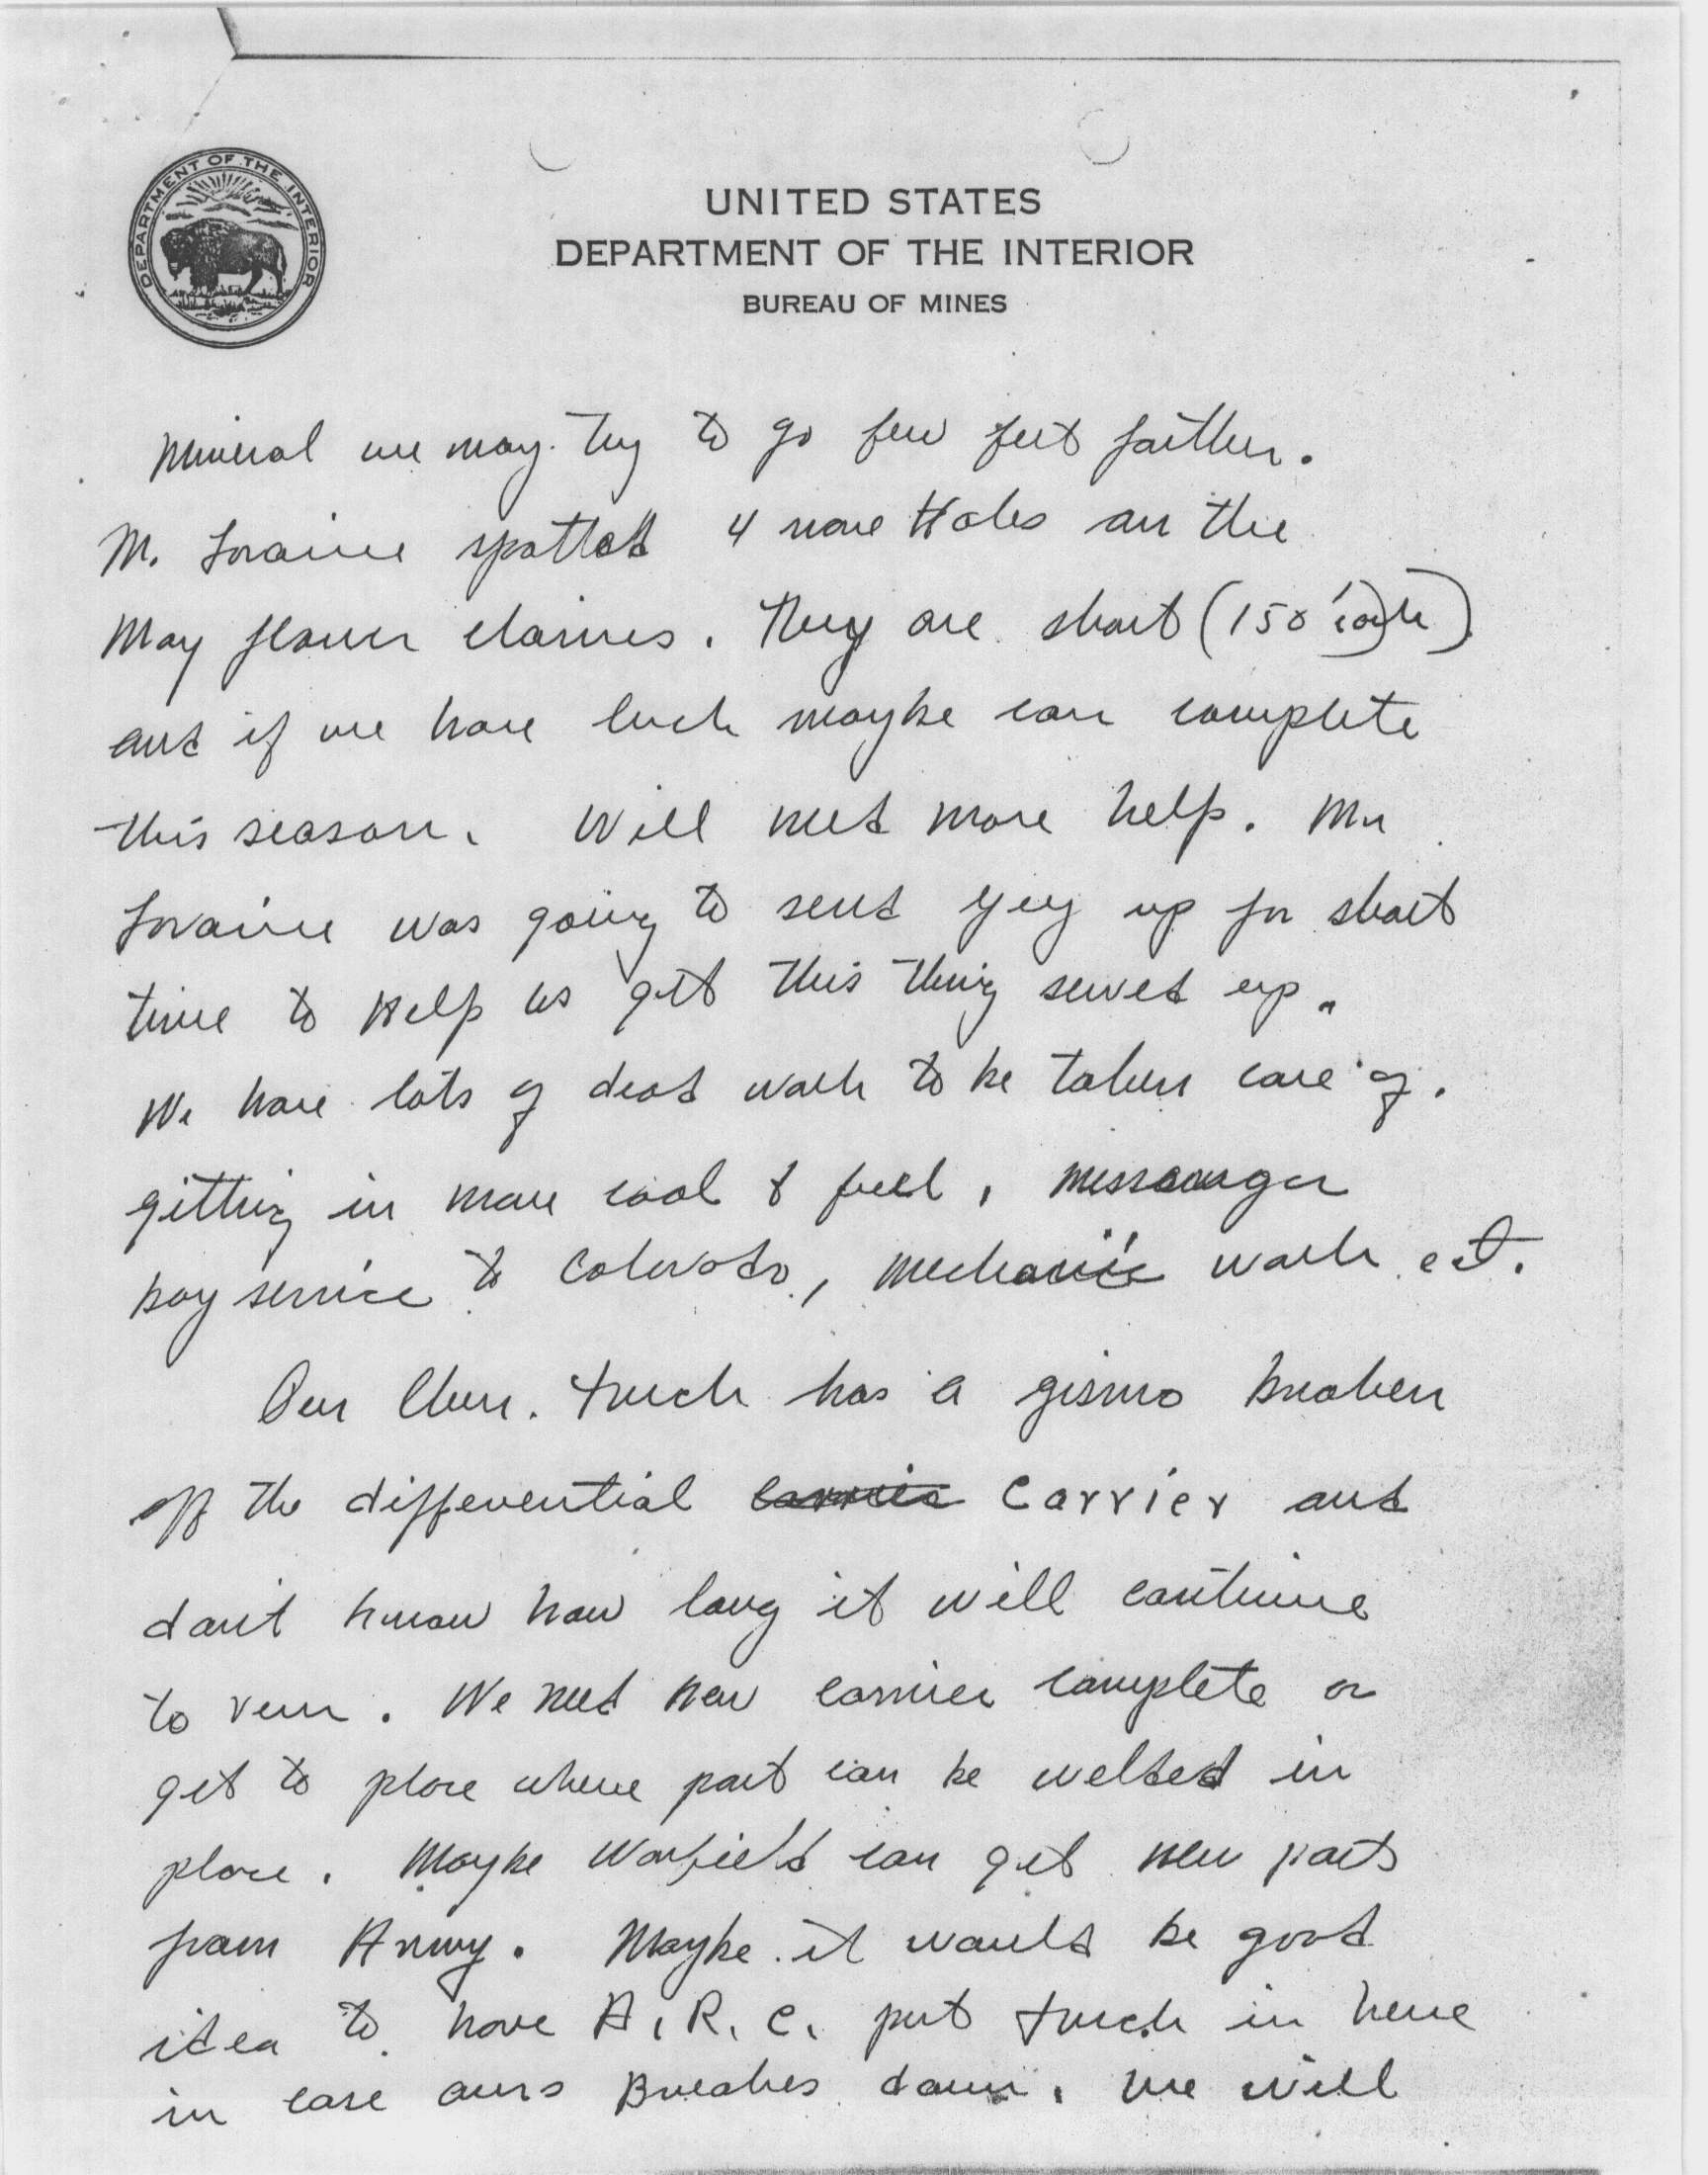 DEPARTMENT OF THE INTERIOR
UNITED STATES
DEPARTMENT OF THE INTERIOR
BUREAU OF MINES
Mineral we may try to go few feet farther.
M. Loraine spotted 4 more Holes on the
May flower claims. They are short (150' each)
and if we have luck maybe can complete
this season. Will need more help. Mr
Loraine was going to send up for short
time to Help us get this thing sewed up.
We have lots of dead work to be taken care of.
gitting in more coal & fuel, messanger
boy service to Colorado, mechanic work ect.
Our Chev. truck has a gismo broken
off the differential carrier Carrier and
don't know how long it will continue
to run. We need new carrier complete or
get to place where part can be welded in
place. Maybe Warfield can get new parts
from Army. Maybe it would be good
idea to have A.R.C. put truck in here
in case ours Breakes down. We will